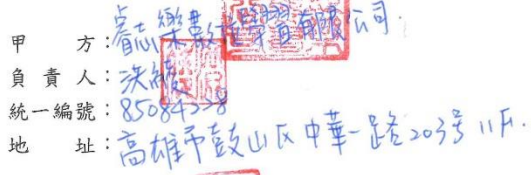 甲方:睿志樂數位學習有限公司.
負責人:洪綾
統一編號:85084228
地址:高雄市鼓山区中華一路203号11F.